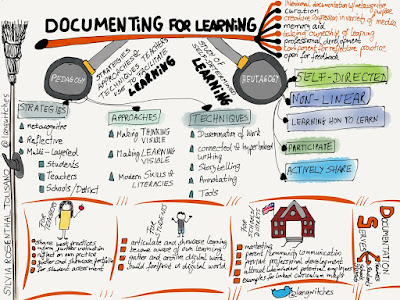 DOCUMENTING FOR LEARNING
curation
creative expression in variety of media
memory aid
taking ownership of learning
professional development
component for reflective practice
open for feedback
PEDAGOGY
STRATEGIES
APPROACHES &
TECHNIQUES TEACHERS
USE TO FACILITATE
LEARNING
HEUTAGOGY
STUDY OF
SELF-DETERMINED
LEARNING
SELF-DIRECTED
NON-LINEAR
LEARNING HOW TO LEARN
PARTICIPATE
ACTIVELY SHARE
STRATEGIES
metacognitive
Reflective
Multi-Layered
Students
Teachers
Schools/District
APPROACHES
Making THINKING
VISIBLE
Making LEARNING
VISIBLE
Modern Skills &
LITERACIES
TECHNIQUES
Dissemination of Work
connected & hyperlinked
writing
Storytelling
Annotating
Tools
SILVIA ROSENTHAL TOLISANO
@langwitches
FOR
share best practices
reflect on own practice
gather and showcase portfolio
for student assessment
FOR
articulate and showcase learning
become aware of own learning
gather and archive digital work
build portfolio of digital work
FOR
marketing
parent/community communication
provide professional development
attract like-minded potential employees
examples for linked curriculum maps
DOCUMENTATION
SERVES
@langwitches